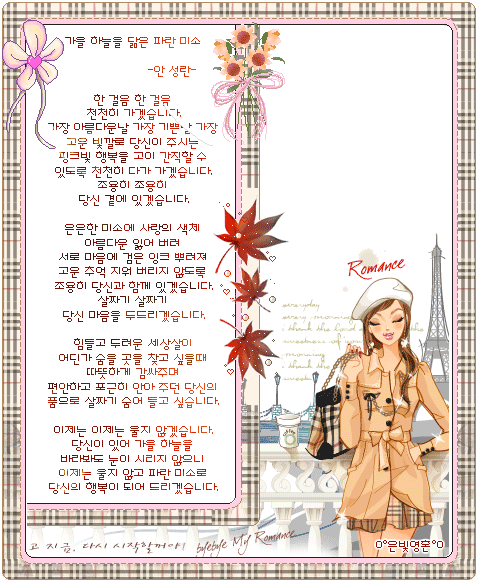 가을 하늘을 닮은 파란 미소
-안 성란-
한 걸음 한 걸음
천천히 가겠습니다.
가장 아름다운날 가장 기쁜날 가장
고운 빛깔로 당신이 주시는
핑크빛 행복을 고이 간직할 수
있도록 천천히 다가 가겠습니다.
조용히 조용히
당신 곁에 있겠습니다.
은은한 미소에 사랑의 색체
아름다운 잃어 버려
서로 마음에 검은 잉크 뿌려져
고운 추억 지워 버리지 않도록
조용히 당신과 함께 있겠습니다.
살짜기 살짜기
당신 마음을 두드리겠습니다.
힘들고 두려운 세상살이
어딘가 숨을 곳을 찾고 싶을때
따뜻하게 감싸주며
편안하고 포근히 안아 주던 당신의
품으로 살짜기 숨어 들고 싶습니다.
이제는 이제는 울지 않겠습니다.
당신이 있어 가을 하늘을
바라봐도 눈이 시리지 않으니
이제는 울지 않고 파란 미소로
당신의 행복이 되어 드리겠습니다.
Romance
everyday
every morning
i thank the
고 지금. 다시 시작할꺼야! byebye My Romance
O°은빛영혼°O